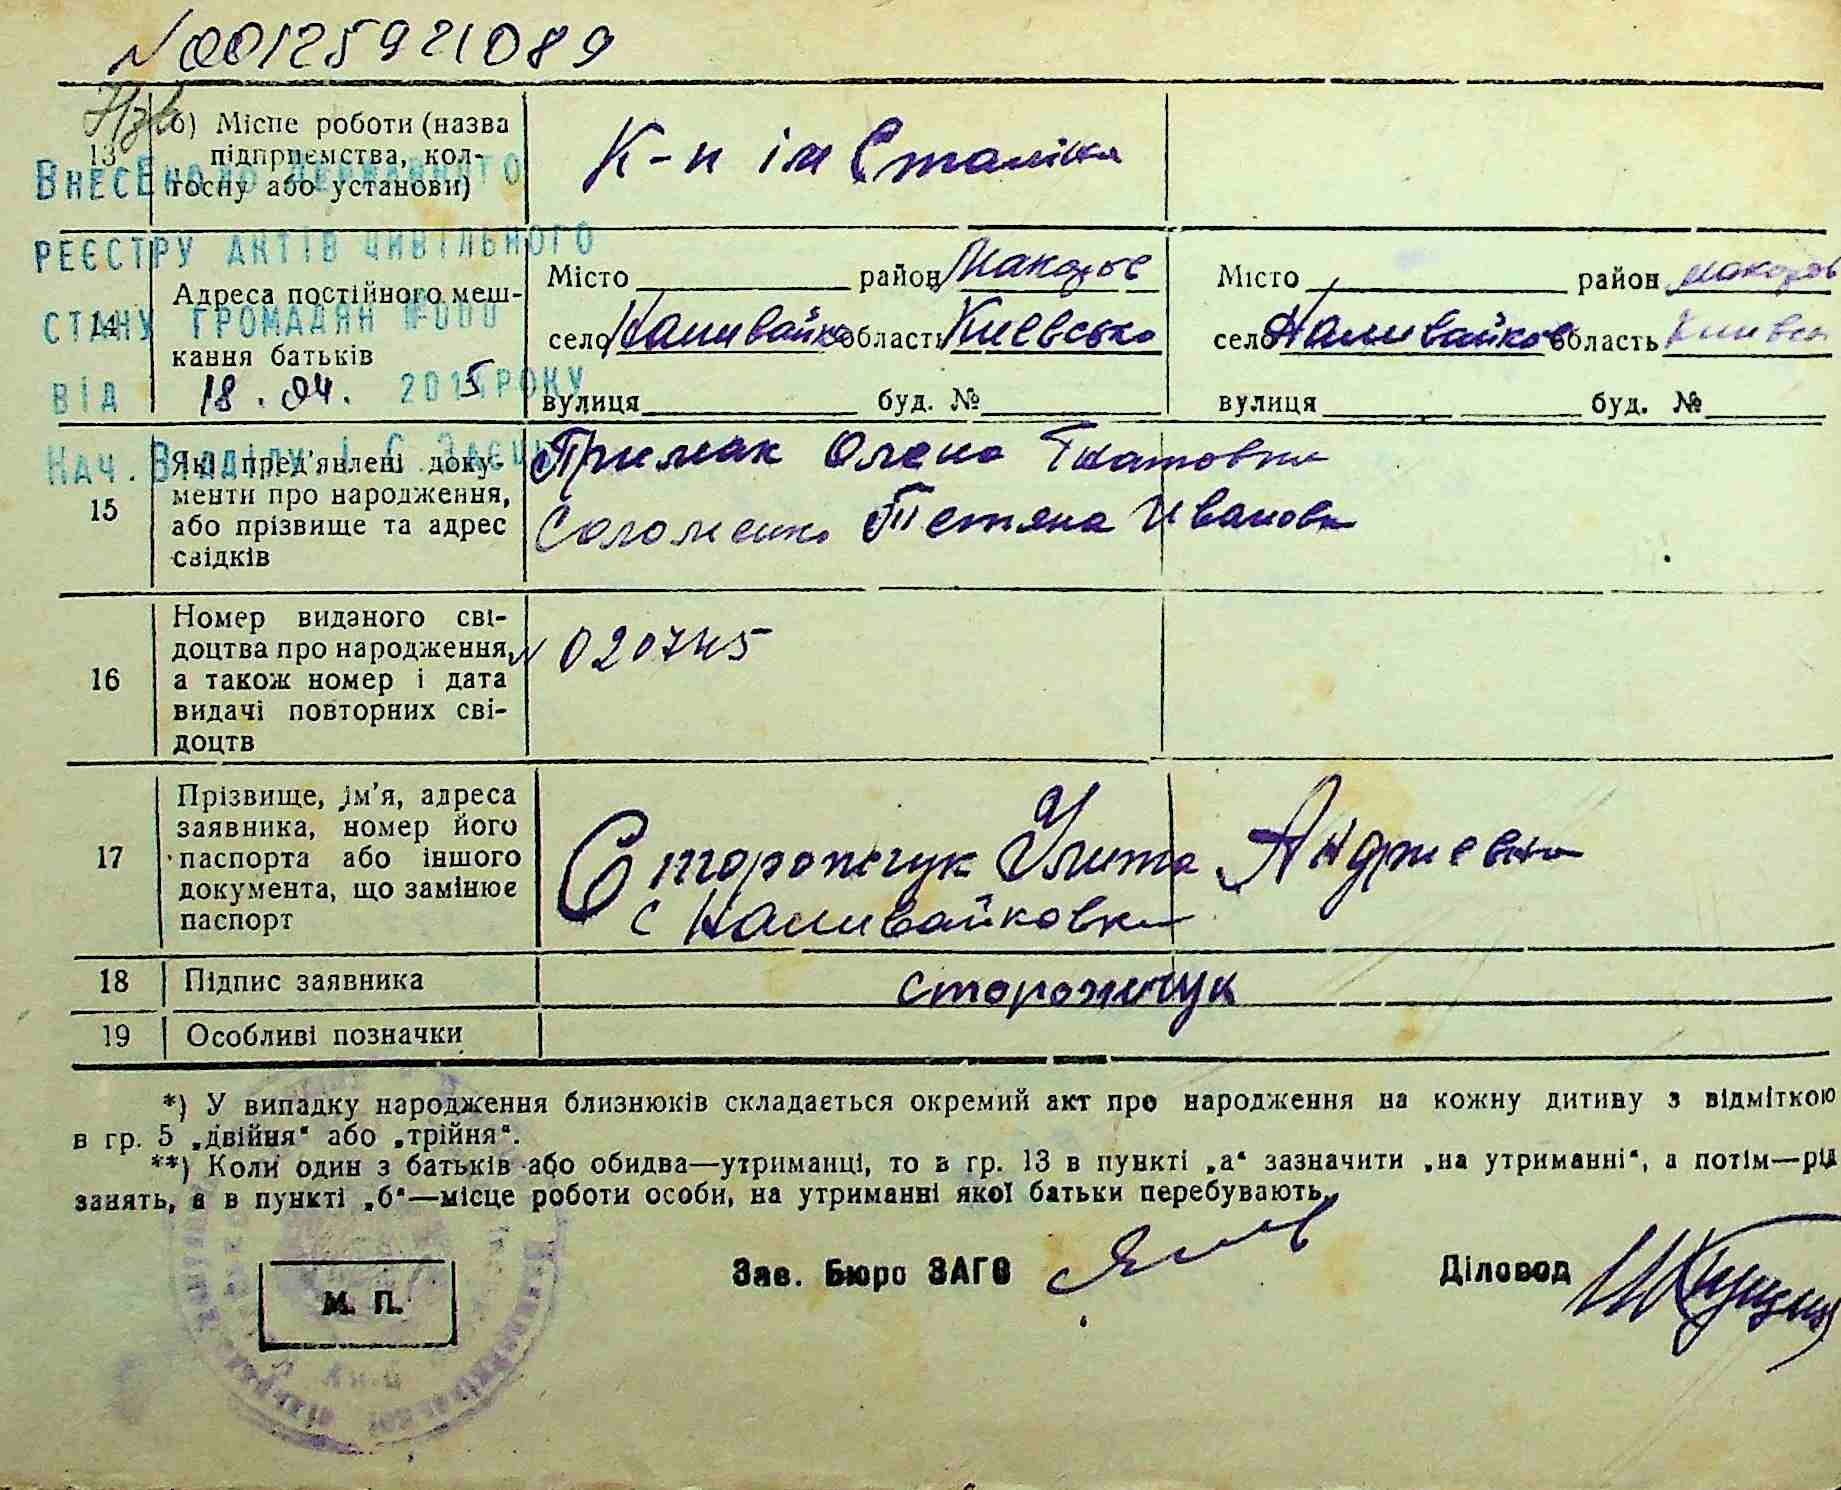 N 00125921089
13 б) Місце роботи (назва
підприємства, кол-
госпу або установи)
К-п ім Сталіна
Внесено до Державного
реєстру актів цивільного
стану громадян №000
від 18.04. 2015 року
Нач. Відділу І. С. Заєць
14 Адреса постійного меш-
кання батьків
Місто район Макарів
село Наливайків область Киевсько
вулиця буд. №
Місто район Макаров
село Наливайков область Київсь
вулиця буд. №
15 Які пред'явлені доку-
менти про народження,
або прізвище та адрес
свідків
Примак Олена Гнатовна
Соломенко Тетяна Ивановн
16 Номер виданого сві-
доцтва про народження,
а також номер і дата
видачі повторних сві-
доцтв
N 020745
17 Прізвище, ім'я, адреса
заявника, номер його
паспорта або іншого
документа, що замінює
паспорт
Сторожчук Улита Анджеевна
с Наливайковка
18 Підпис заявника
сторожчук
19 Особливі позначки
*) У випадку народження близнюків складається окремий акт про народження на кожну дитину з відміткою
в гр. 5 „двійня“ або „трійня“.
**) Коли один з батьків або обидва—утриманці, то в гр. 13 в пункті „а“ зазначити „на утриманні“, а потім—рід
занять, а в пункті „б“—місце роботи особи, на утриманні якої батьки перебувають.
М. П.
Зав. Бюро ЗАГС
Діловод